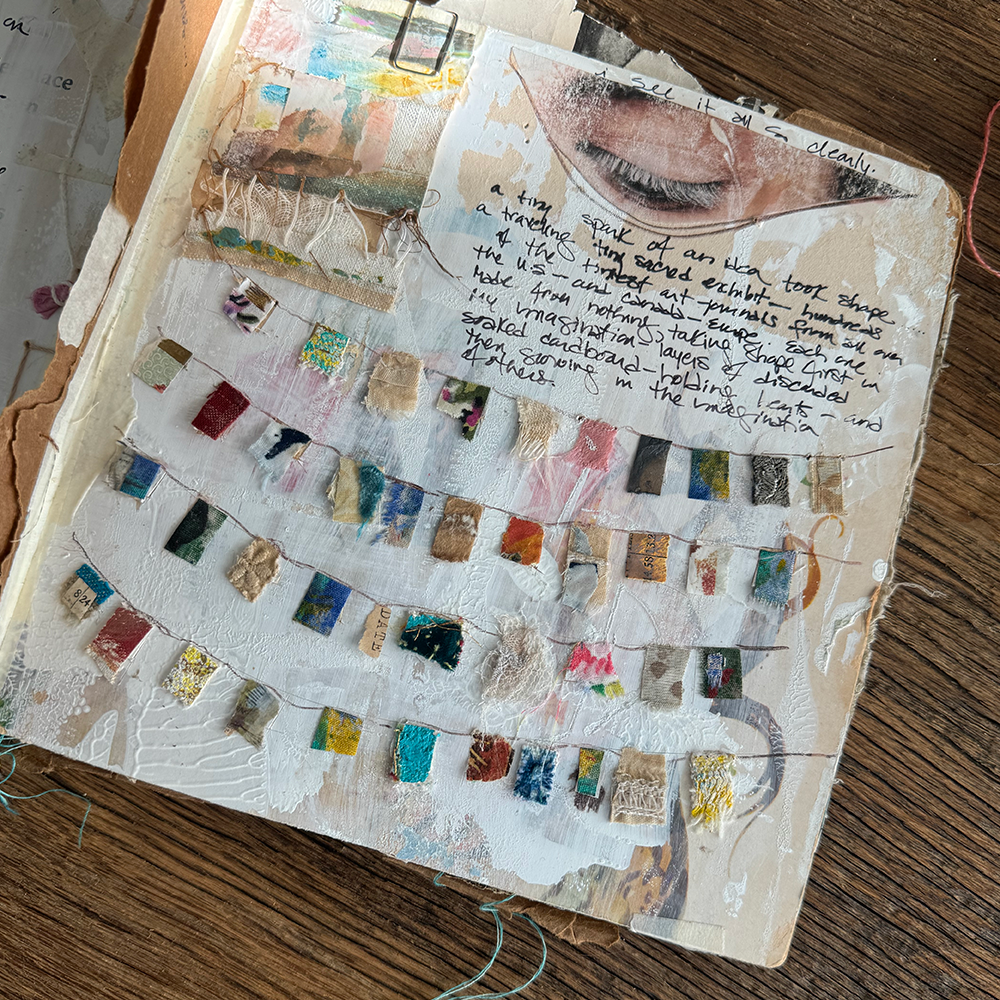 on
place
n
i see it all so clearly.
a tiny spark of an idea took shape
a traveling tiny sacred exhibit — hundreds
of the tiniest art journals from all over
the U.S. — and canada — europe. Each one
made from nothing, taking shape first in
my imagination, layers of discarded
soaked cardboard — holding hearts — and
then growing in the imagination
of others.
14 58
DATE
824